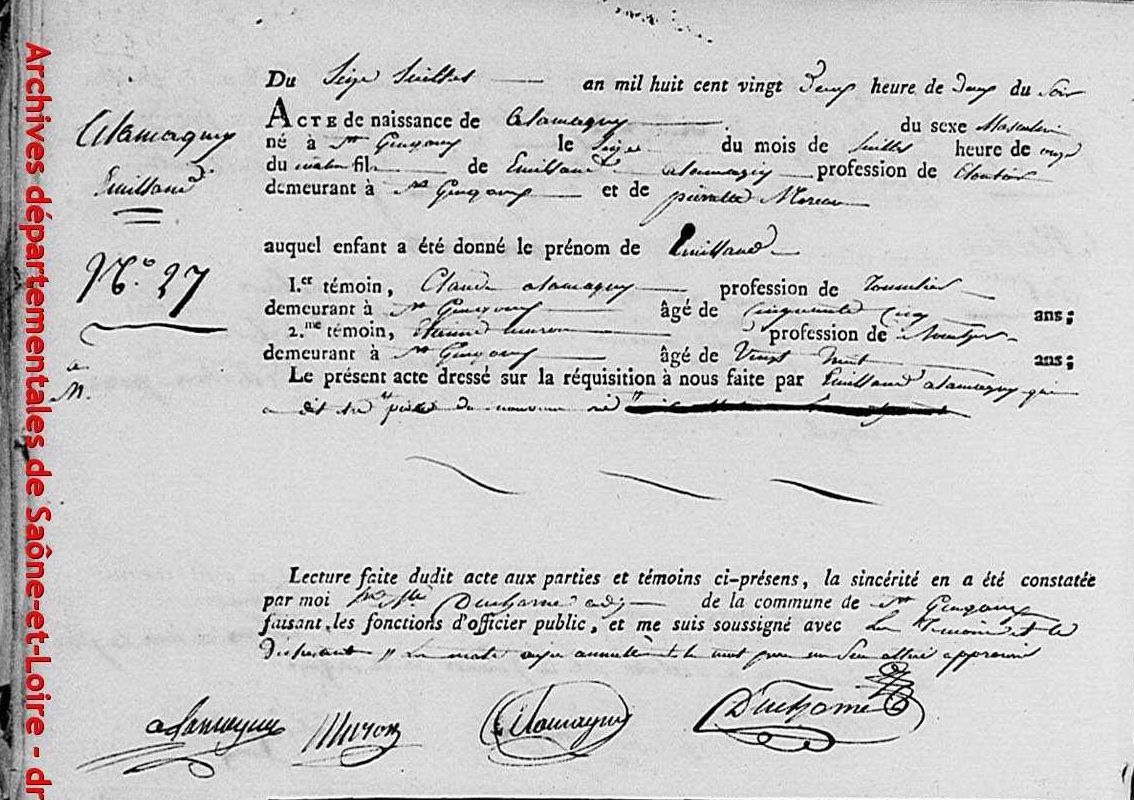 Archives départementales de Saône-et-Loire - dr
Du Seize Juillet an mil huit cent vingt Deux heure de Deux du Soir
Alamagny
Emilland
N.° 27
ACTE de naissance de Alamagny du sexe Masculin
né à St Gengoux le Seize du mois de Juillet heure de onze
du matin fils de Emilland alamagny profession de
demeurant à St Gengoux et de pierrette Moreau
auquel enfant a été donné le prénom de Emilland
I.er témoin, Claude alamagny profession de Tonnelier
demeurant à St Gengoux âgé de Cinquante Cinq ans;
2.me témoin, muron profession de
demeurant à St Gengoux âgé de Vingt huit ans;
Le présent acte dressé sur la réquisition à nous faite par Emilland alamagny qui
a dit être père du nouveau né
Lecture faite dudit acte aux parties et témoins ci-présens, la sincérité en a été constatée
par moi Ducharne adj de la commune de St Gengoux
faisant les fonctions d'officier public, et me suis soussigné avec Les Temoins et le
Declarant annullé le mot approuvé
alamagny Muron Alamagny DucHarne